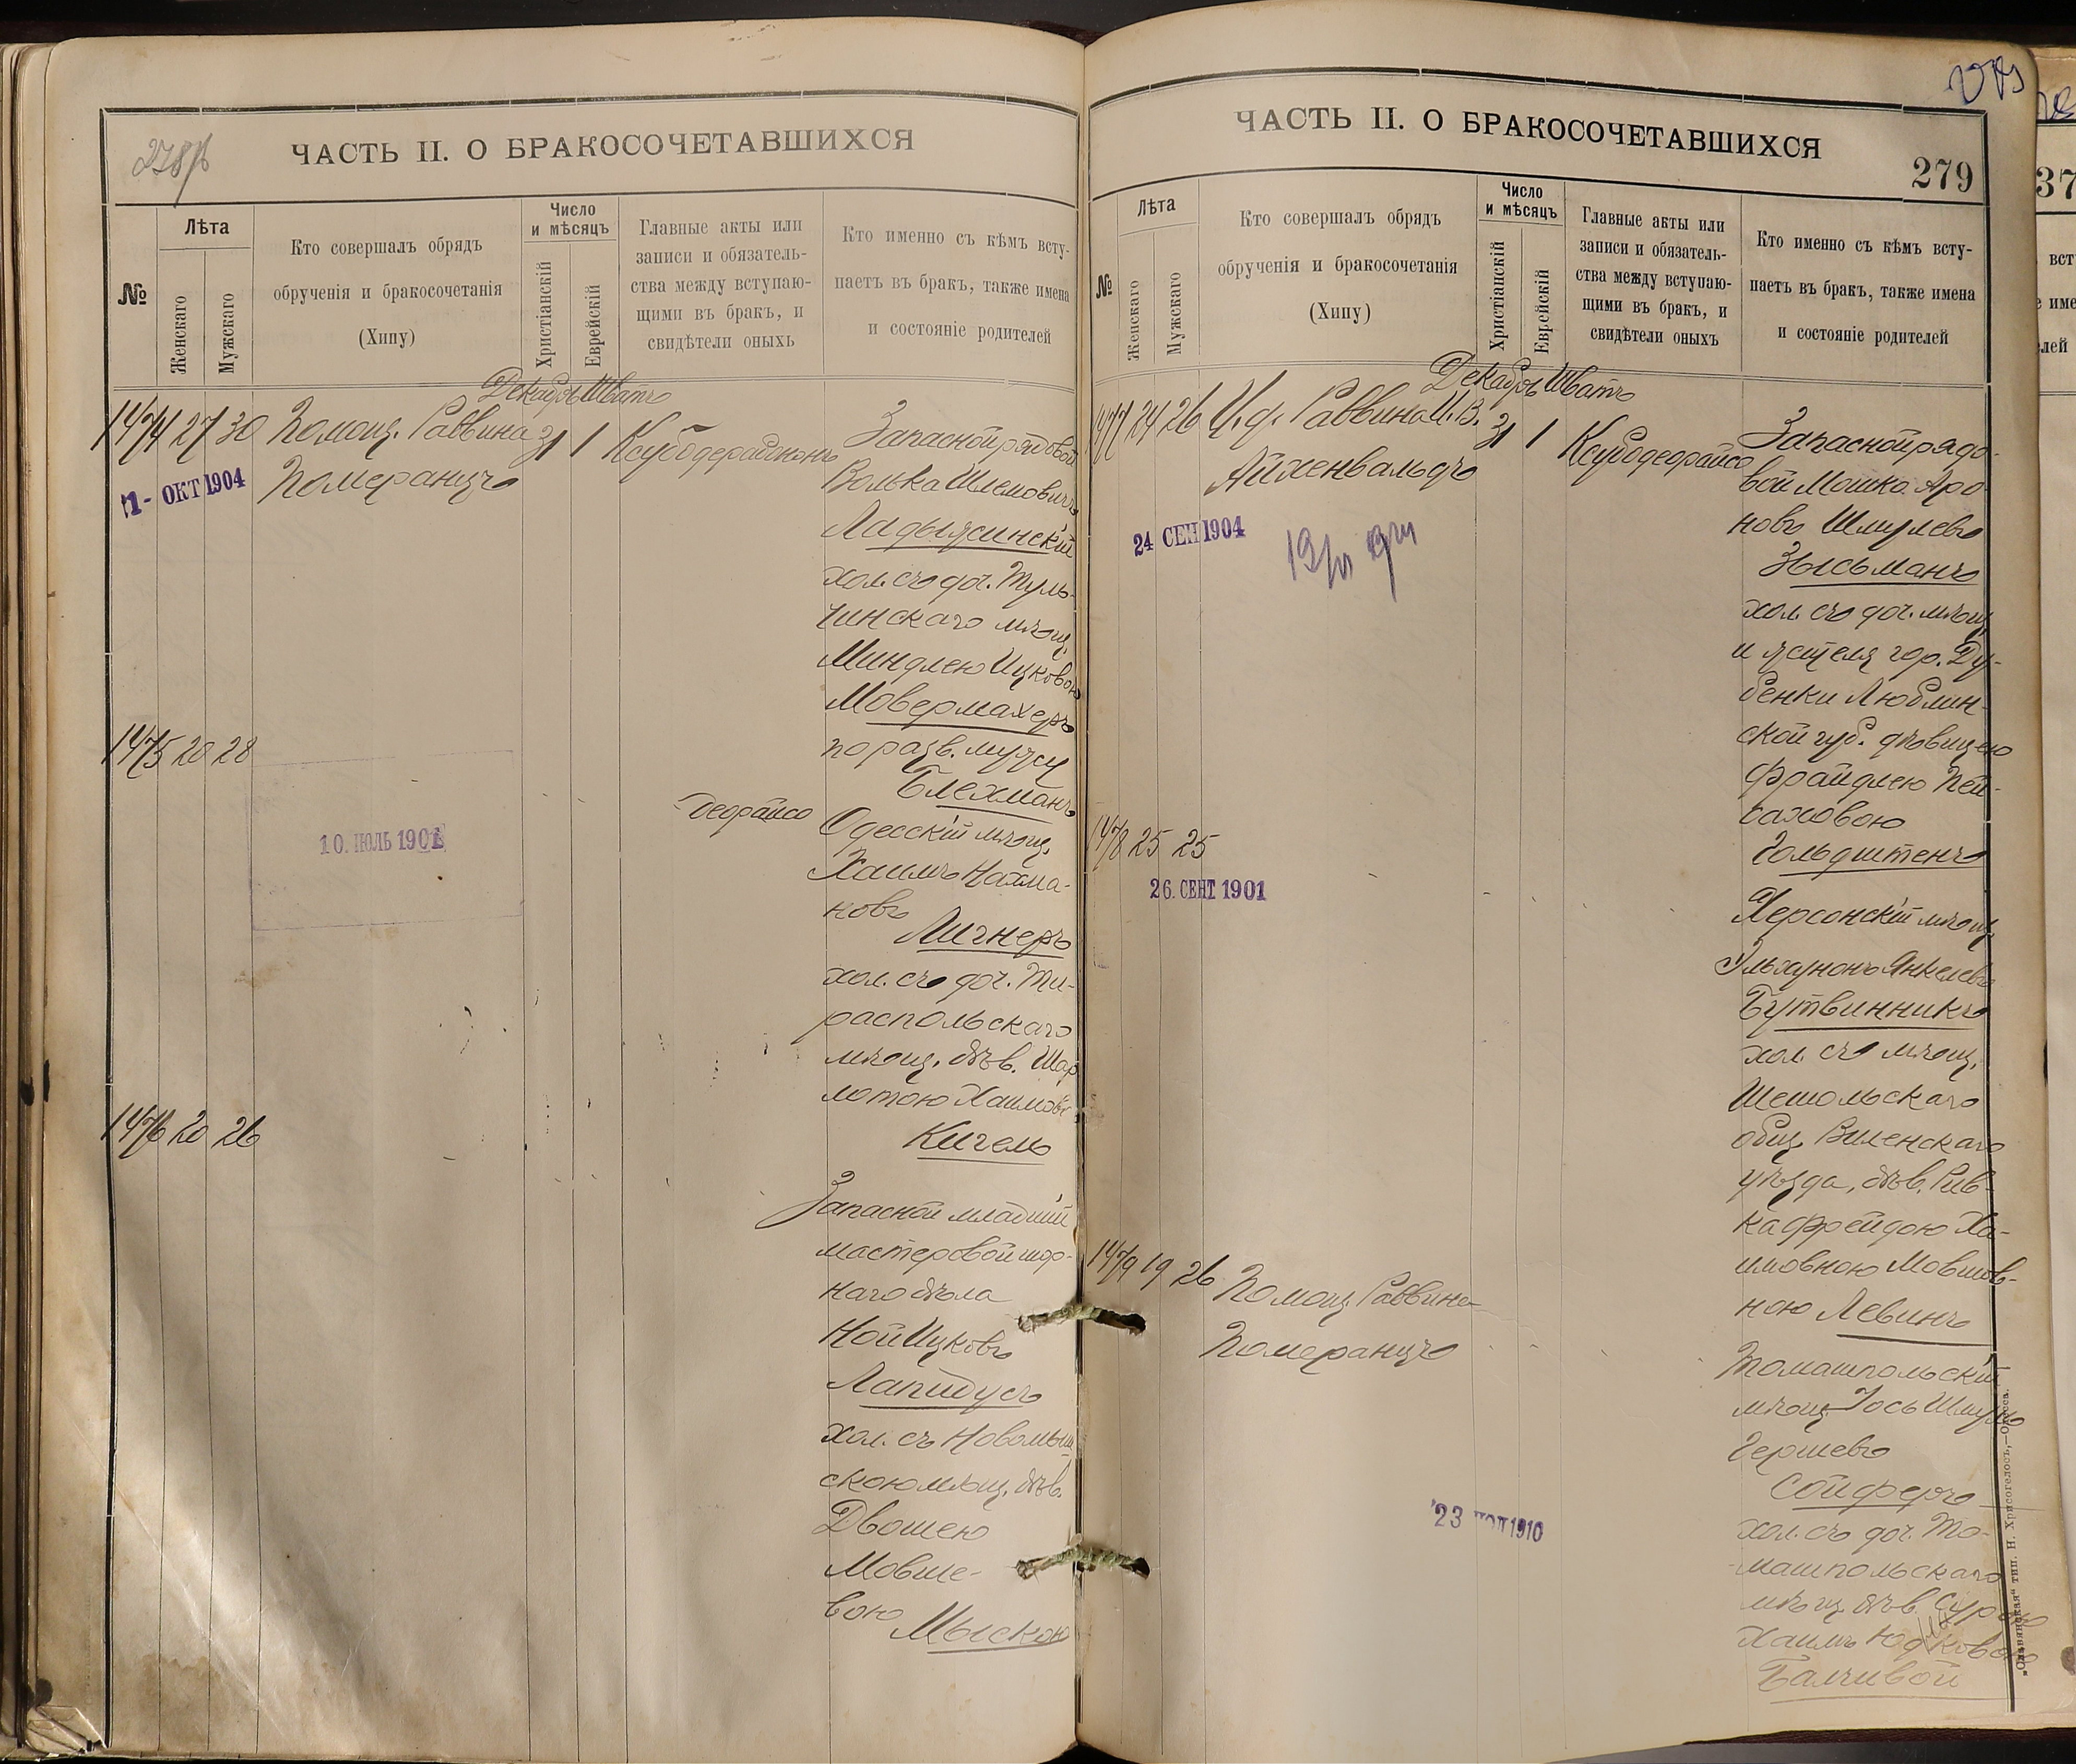 278 об
ЧАСТЬ II. О БРАКОСОЧЕТАВШИХСЯ
№
Лѣта
Женскаго
Мужскаго
Кто совершалъ обрядъ
обрученія и бракосочетанія
(Хипу)
Число
и мѣсяцъ
Христіанскій
Еврейскій
Главные акты или
записи и обязатель-
ства между вступаю-
щими въ бракъ, и
свидѣтели оныхъ
Кто именно съ кѣмъ всту-
паетъ въ бракъ, также имена
и состояніе родителей
Декабрь Шватъ
1474 27 30 Помощ. Раввина 31 1
1- ОКТ 1904
Померанцъ
Запасной рядовой
Волька Шлемовичъ
Ладыжинскій
хол. съ доч. Туль-
чинскаго мѣщ.
Миндлею Ицковою
Мовермахеръ
по разв. мужу
Блехманъ
1475 20 28
10. ІЮЛЬ 1901
деорайсо
Одесскій мѣщ.
Хаимъ Нахма-
новъ
Лигнеръ
хол. съ доч. Ти-
распольскаго
мѣщ. дѣв. Шар
лотою Хаимов
Кигель
1476 20 26
Запасной младшій
мастеровой шор-
наго дѣла
Ной Ицковъ
Лапидусъ
хол. съ Новомыш
скою мѣщ. дѣв.
Двошею
Мовше-
вою
Мыскою
ЧАСТЬ II. О БРАКОСОЧЕТАВШИХСЯ
279
№
Лѣта
Женскаго
Мужскаго
Кто совершалъ обрядъ
обрученія и бракосочетанія
(Хипу)
Число
и мѣсяцъ
Христіанскій
Еврейскій
Главные акты или
записи и обязатель-
ства между вступаю-
щими въ бракъ, и
свидѣтели оныхъ
Кто именно съ кѣмъ всту-
паетъ въ бракъ, также имена
и состояніе родителей
Декабрь Шватъ
1477 24 26 И. д. Раввина И. В. 31 1 Ксубо деорайсо
Айхенвальдъ
24 СЕН 1904
Запасной рядо-
вой Мошко Аро
новъ Шмулевъ
Зысьманъ
хол. съ доч. мѣщ.
и жителя гор. Ду-
бенки Люблин-
ской губ. дѣвицею
Фрайдлею Пей-
саховою
Гольдштенъ
1478 25 25
26. СЕНТ 1901
Херсонскій мѣщ.
Эльхунонъ Янкелевъ
Бутвинникъ
хол. съ мѣщ.
Шешольскаго
общ. Виленскаго
уѣзда, дѣв. Рив-
ка Фрейдою Ха-
имовною Мовшов-
ною Левинъ
1479 19 26 Помощ. Раввина
Померанцъ
23 1910
Томашпольскій
мѣщ. Іось Шмуль
Гершевъ
Сойферъ
хол. съ доч. То-
машпольскаго
мѣщ. дѣв. Сурою
Хаимъ Юдковою
Балчивой
„Славянская“ тип. Н. Хрисогелосъ,—Одесса.